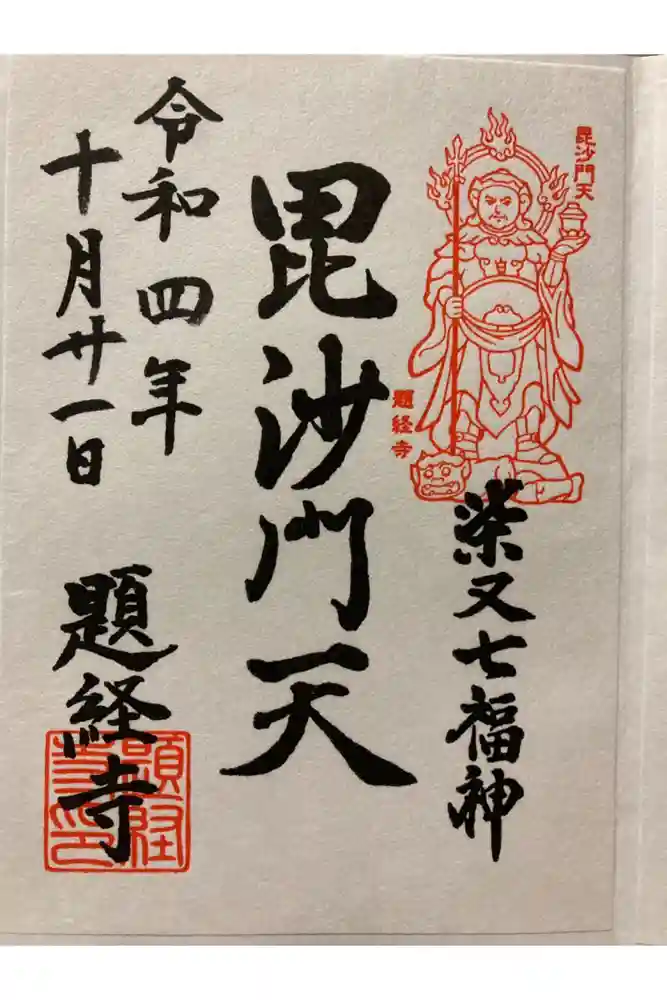 毘沙門天
題経寺
柴又七福神
毘沙門天
令和四年
十月廿一日
題経寺